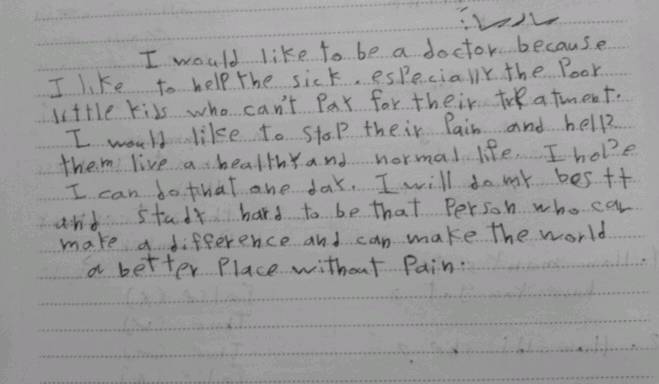 I would like to be a doctor because
I like to help the sick. especially the Poor
little kids who can't Pay for their treatment.
I would like to stop their Pain and help
them live a healthy and normal life. I hope
I can do that one day. I will do my best
and study hard to be that Person who can
make a difference and can make the world
a better Place without Pain.